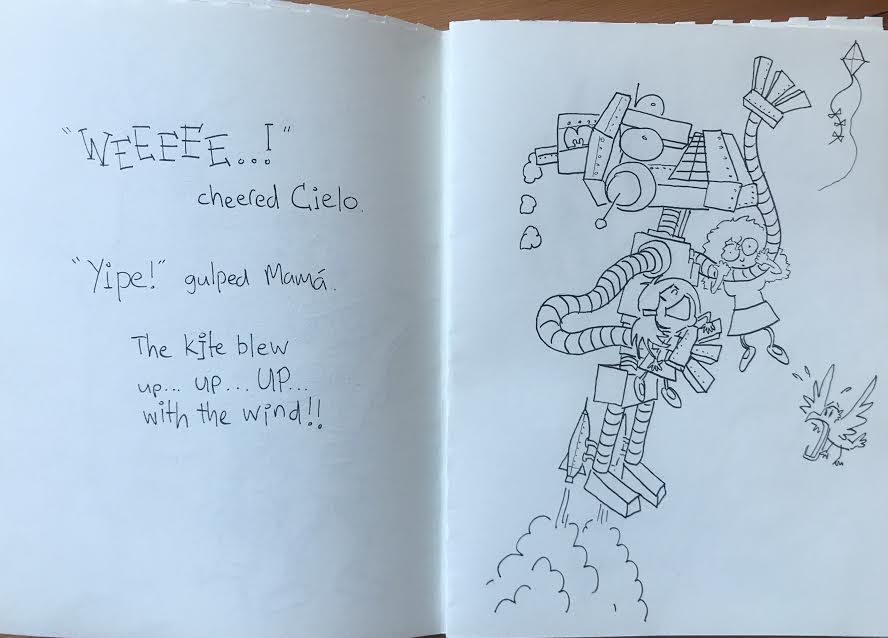 "WEEEEE...!"
cheered Cielo.
"Yipe!" gulped Mamá.
The kite blew
up... up... UP...
with the wind!!